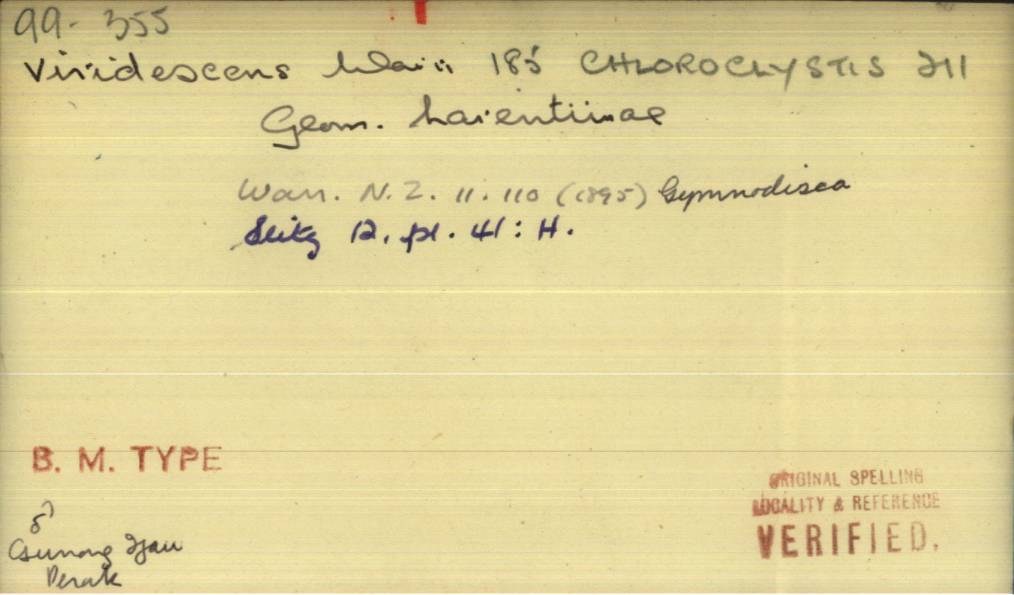 99- 355
Viridescens Warr. 185 CHLOROCLYSTIS 211
Geom. Larentiinae
Warr. N.Z. 11. 110 (1895) Gymnodisca
Seitz 12. pl. 41: H.
B. M. TYPE
ORIGINAL SPELLING
LOCALITY & REFERENCE
VERIFIED.
♂
Gunong Ijau
Perak